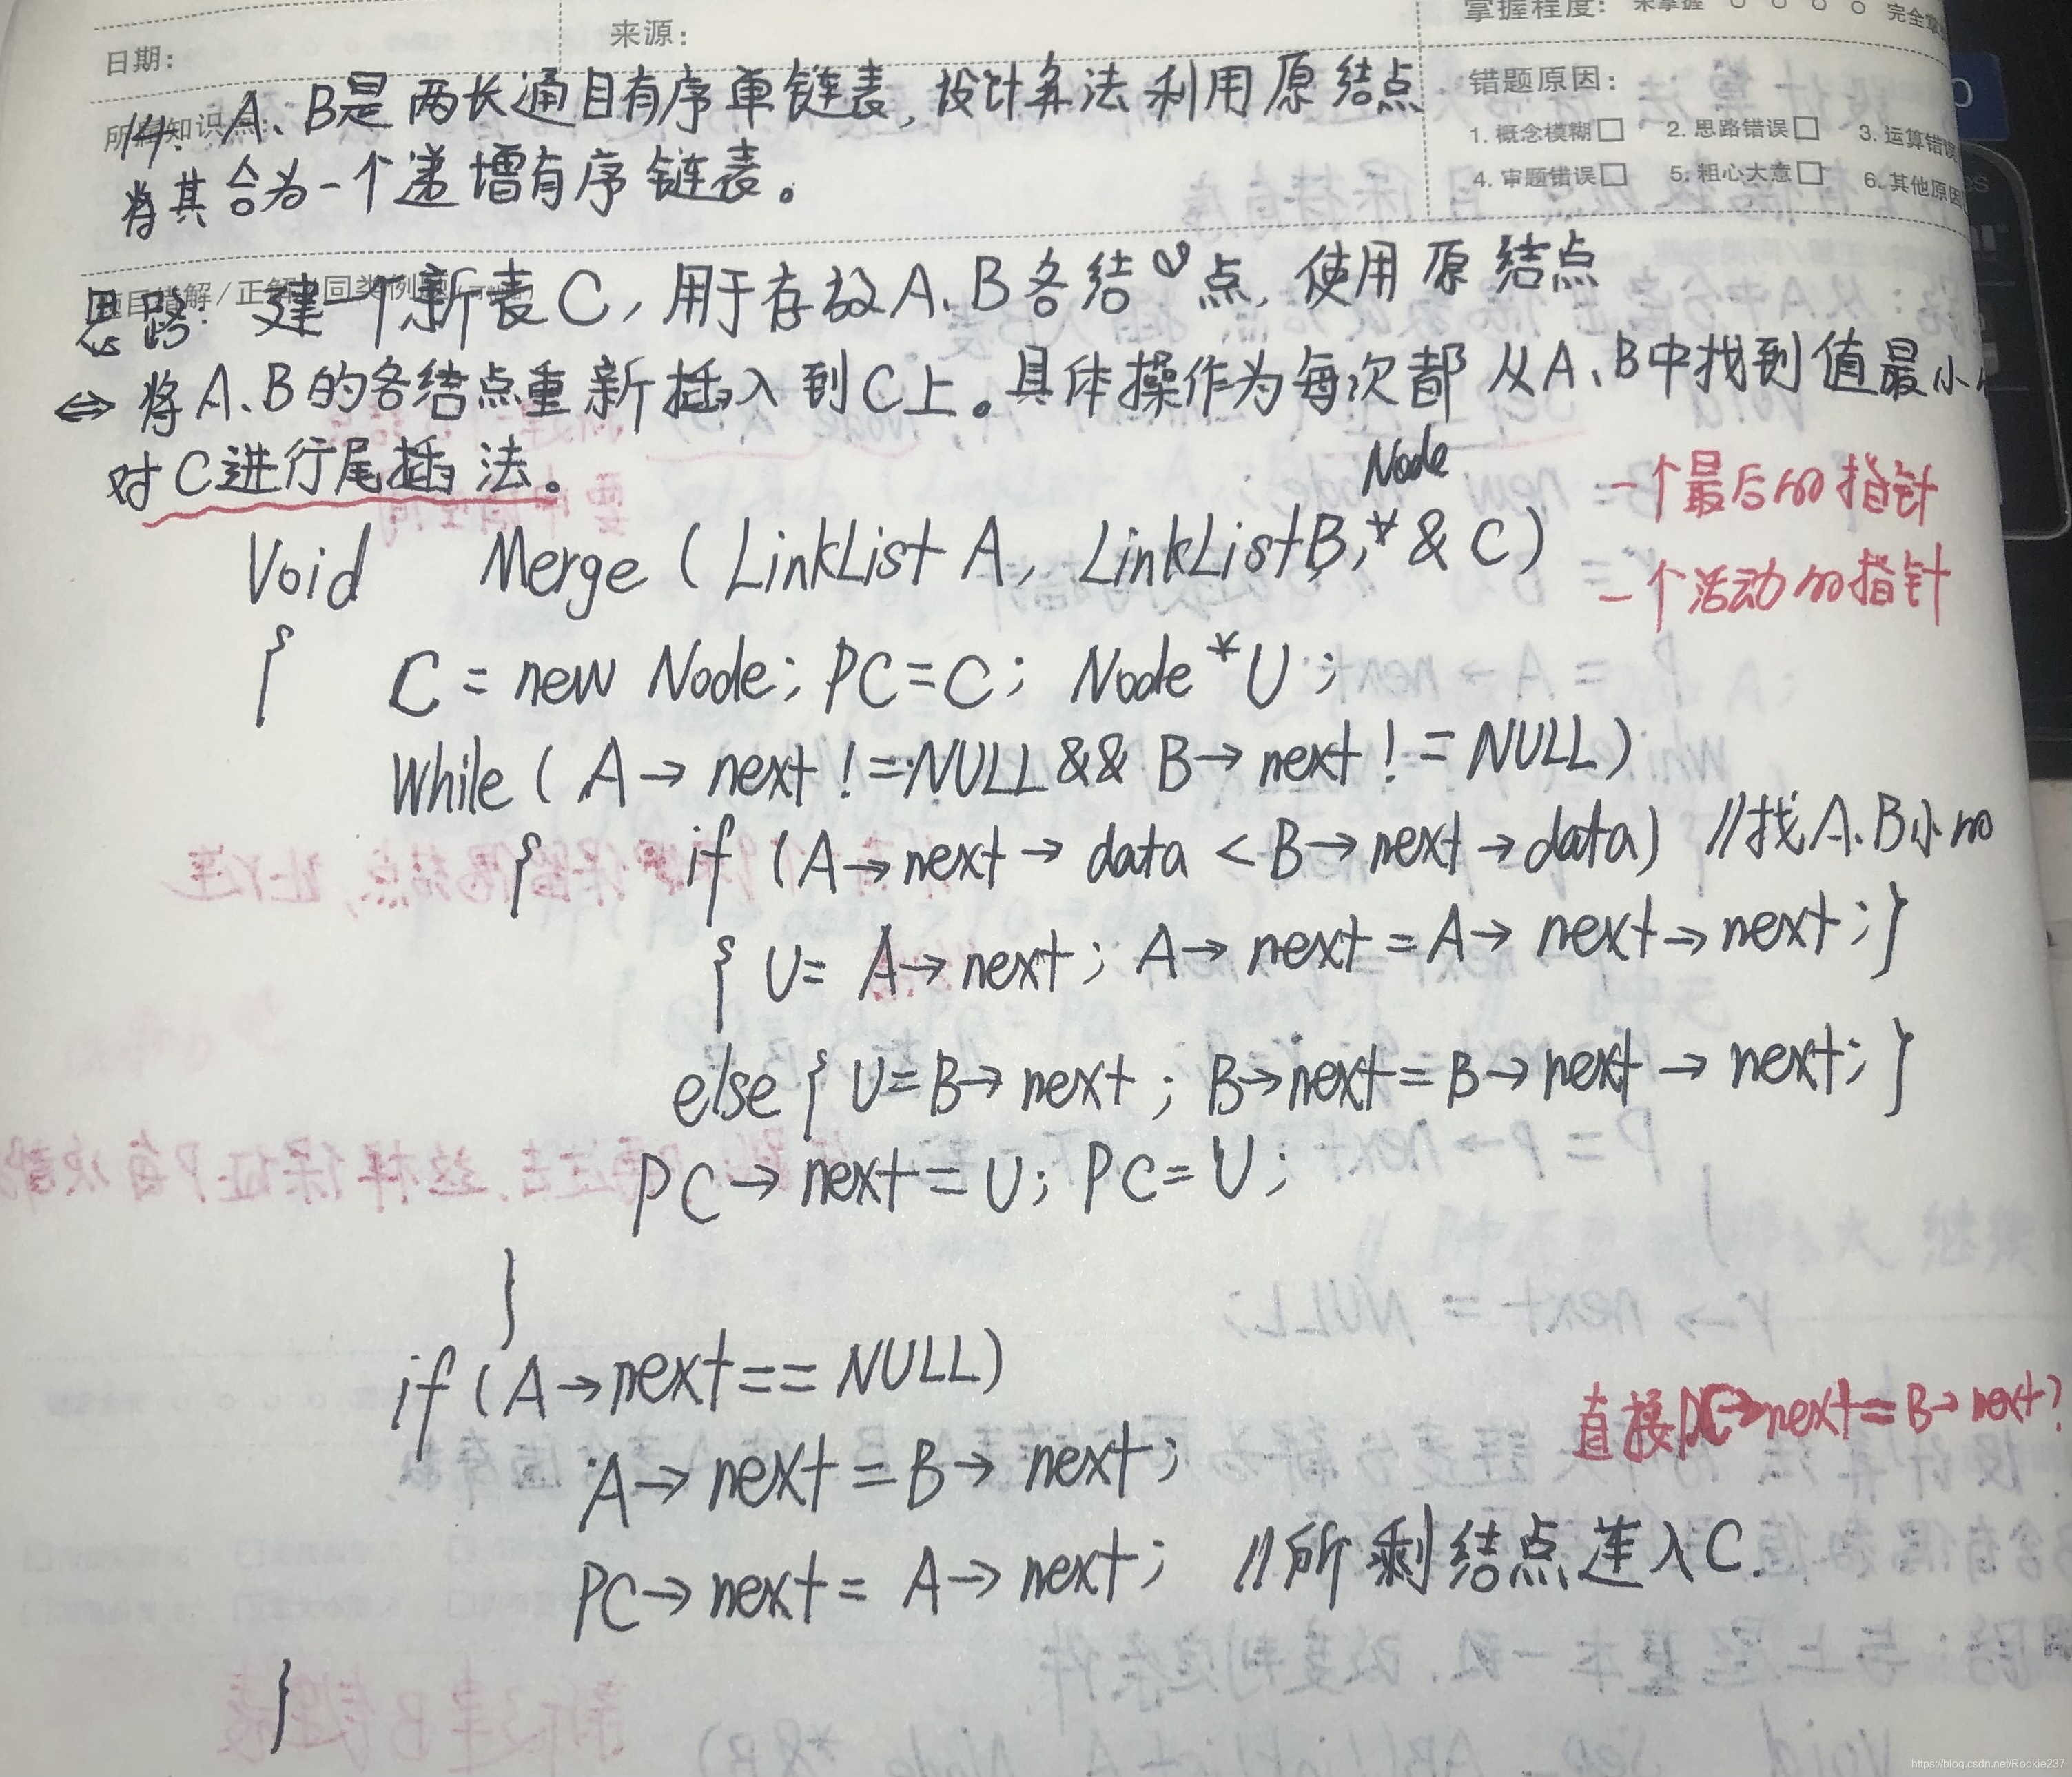 日期：
来源：
掌握程度： 未掌握 ○ ○ ○ ○ 完全掌
错题原因：
1. 概念模糊□ 2. 思路错误□ 3. 运算错误
4. 审题错误□ 5. 粗心大意□ 6. 其他原因
14. A、B是两长通目有序单链表，设计算法利用原结点
将其合为一个递增有序链表。
思路： 建一个新表C，用于存放A、B各结点，使用原结点
⇔ 将A、B的各结点重新插入到C上。具体操作为每次都从A、B中找到值最小
对C进行尾插法。
一个最后的指针
一个活动的指针
Node
Void Merge (LinkList A, LinkList B, *& C)
{ C = new Node; PC = C; Node *U;
While (A→next != NULL && B→next != NULL)
{ if (A→next→data < B→next→data) //找A、B小的
{ U = A→next; A→next = A→next→next;}
else { U = B→next; B→next = B→next→next; }
PC→next = U; PC = U;
}
if (A→next == NULL)
A→next = B→next;
直接PC→next = B→next?
PC→next = A→next; //所剩结点连入C.
}
https://blog.csdn.net/Rookie237